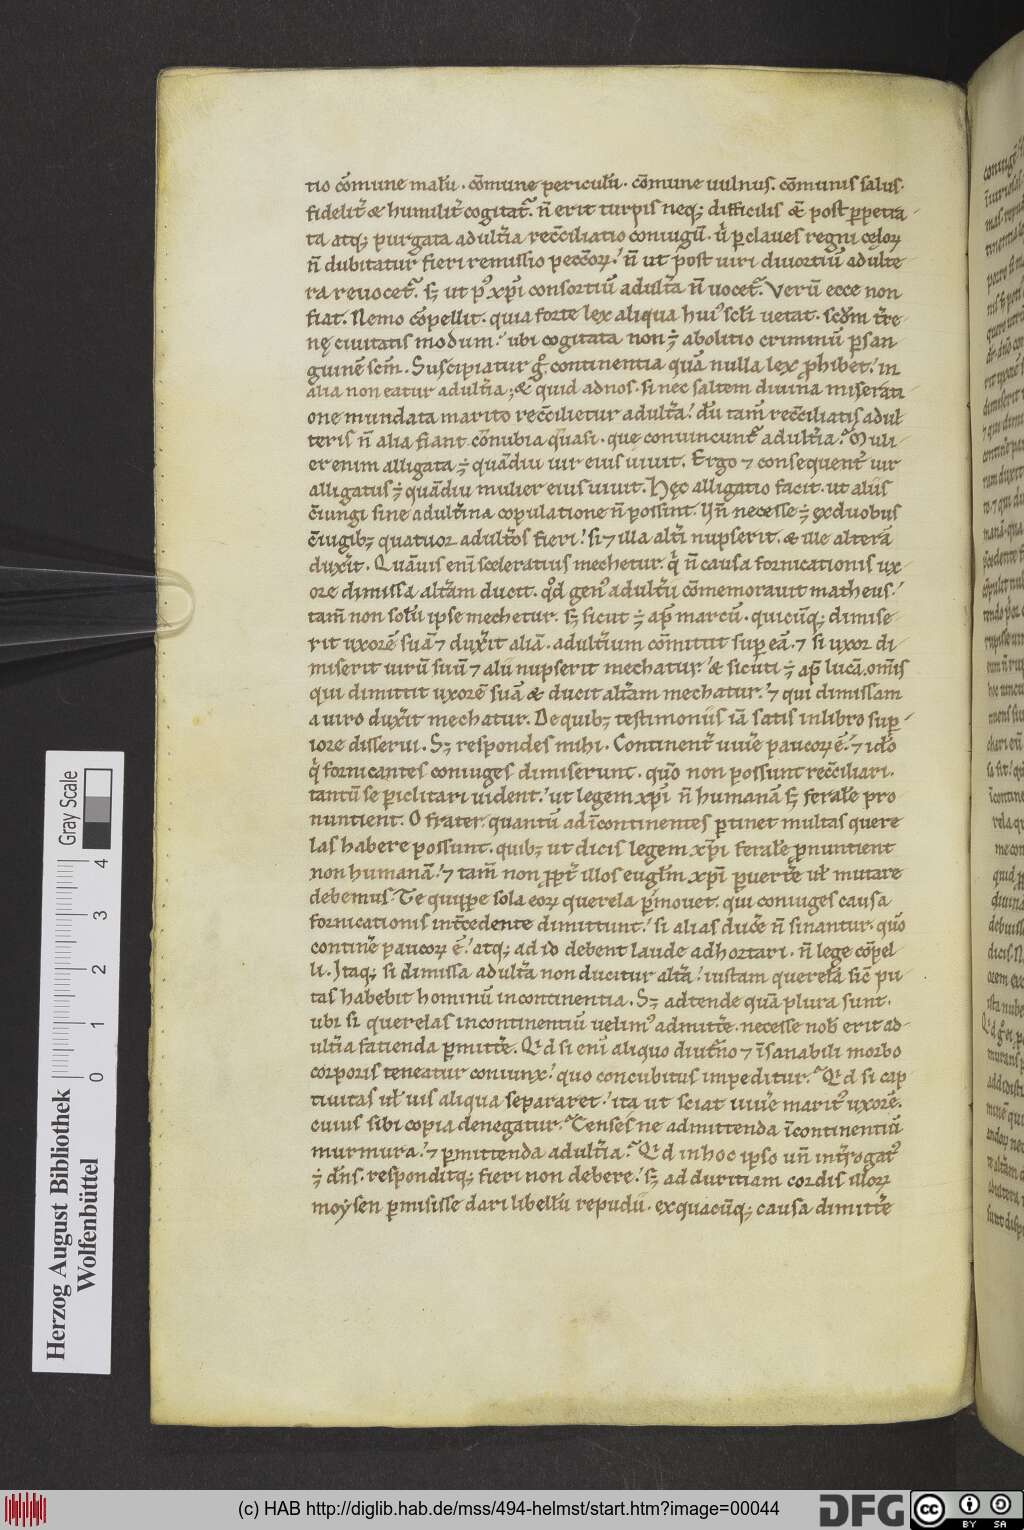 tio cōmune malū. cōmune periculū. cōmune uulnus. cōmunis salus.
fidelit̄ & humilit̄ cogitat̄. n̄ erit turpis neq; difficilis & post ꝑpetra
ta atq; purgata adult̄ia rec̄ciliatio coniugū. u̇ ꝑ claues regni cęloꝝ
n̄ dubitatur fieri remissio pecc̄oꝝ. n̄ ut post uiri diuortiū adulte
ra reuocet̄. sꝫ ut pꝰ xp̄i consortiū adult̄a n̄ uocet̄. Verū ecce non
fiat. Nemo cōpellit. quia forte lex aliqua huiꝰ sc̄li uetat. scd̄m t̄re
nę ciuitatis modum. ubi cogitata non ÷ abolitio criminū ꝑ san
guinē sc̄m. Suscipiatur g̊ continentia quā nulla lex ꝓhibet. in
alia non eatur adult̄ia; & quid ad nos. si nec saltem diuina miserati
one mundata marito rec̄cilietur adult̄a. dū tam̄ rec̄ciliatis adul
teris n̄ alia fiant cōnubia quasi. que conuincunt̄ adult̄ia. Muli
er enim alligata ÷ quādiu uir eius uiuit. Ergo ⁊ consequent̄ uir
alligatus ÷ quādiu mulier eius uiuit. Hęc alligatio facit. ut aliis
c̄iungi sine adult̄ina copulatione n̄ possint. Vn̄ necesse ÷ ex duobus
c̄iugibꝫ quatuor adult̄os fieri. si ⁊ illa alt̄i nupserit. & ille alterā
dux̄it. Quāuis eni sceleratius mechetur. q̇ n̄ causa fornicationis ux
ore dimissa. alt̄am ducit. qd̄ genꝰ adult̄ii cōmemorauit matheus.
tam̄ non solū ipse mechetur. sꝫ sicut ÷ ap̄ marcū. quicūq; dimise
rit uxorē suā ⁊ dux̄it aliā. adult̄ium cōmittit sup eā. ⁊ si uxor di
miserit uirū suū ⁊ alii nupserit mechatur. & sicuti ÷ ap̄ lucā. om̄is
qui dimittit uxorē suā & ducit alt̄am mechatur. ⁊ qui dimissam
a uiro dux̄it mechatur. De quibꝫ testimoniis iā satis in libro supe
riore disserui. Sꝫ respondes mihi. Continent̄ uiuere paucoꝝ ē. ⁊ idō
q̇ fornicantes coniuges dimiserunt. qūo non possunt rec̄ciliari.
tantū se ꝑiclitari uident. ut legem xp̄i n̄ humanā sꝫ ferale pro
nuntient. O frater. quantū ad īcontinentes ꝑtinet multas quere
las habere possunt. quibꝫ ut dicis legem xp̄i ferale ꝓnuntient
non humanā. ⁊ tam̄ non ꝓpt̄ illos euglīm xp̄i ꝑuert̄e uł mutare
debemus. Te quippe sola eoꝝ querela ꝑmouet. qui coniuges causa
fornicationis int̄cedente dimittunt. si alias duc̄e n̄ sinantur. qūo
contin̄e paucoꝝ ē. atq; ad id debent laude adhortari. n̄ lege cōpel
li. Itaq; si dimissa adult̄a non ducitur alt̄a. iustam querelā sic̄ pu
tas habebit hominū incontinentia. Sꝫ adtende quā plura sunt.
ubi si querelas incontinentiū uelimꝰ admitt̄e. necesse nob̄ erit ad
ult̄ia fatienda ꝑmitt̄e. Qd̄ si eni aliquo diut̄no ⁊ īsanabili morbo
corporis teneatur coniunx. quo concubitus impeditur. Qd̄ si cap
tiuitas uł uis aliqua separaret. ita ut sciat uiu̅e maritꝰ uxorē.
cuius sibi copia denegatur. Censes ne admittenda īcontinentiū
murmura. ⁊ ꝑmittenda adult̄ia. Qd̄ in hoc ipso un̄ int̄rogatꝰ
÷ dn̄s. responditq; fieri non debere. sꝫ ad duritiam cordis illoꝝ
moẏsen ꝑmisisse dari libellū repudii. ex quacūq; causa dimitt̄e
Gray Scale
4
3
2
1
0
Herzog August Bibliothek
Wolfenbüttel
(c) HAB http://diglib.hab.de/mss/494-helmst/start.htm?image=00044
DFG
cc
BY SA